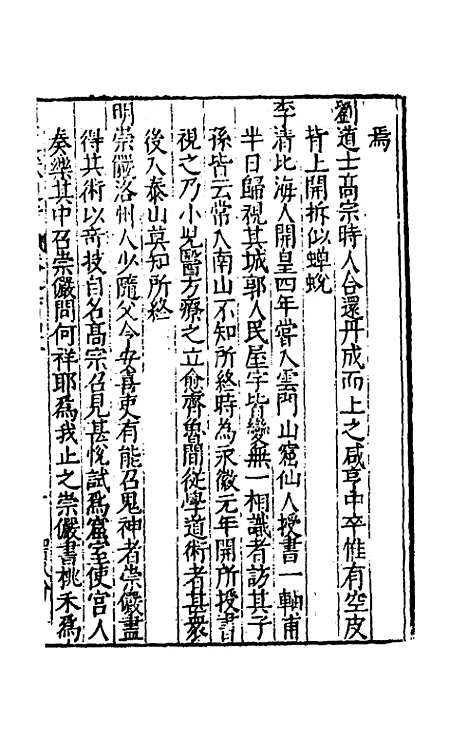 焉
劉道士髙宗時人合還丹成而上之咸亨中卒惟有空皮
背上開拆似蟬蛻
李清北海人開皇四年嘗入雲門山窟仙人授書一軸甫
半日歸視其城郭人民屋宇皆變無一相識者訪其子
孫皆云常入南山不知所終時為永徽元年開所授書
視之乃小兒醫方療之立愈齊魯間從學道術者甚衆
後入泰山莫知所終
明崇儼洛州人少隨父令安喜吏有能召鬼神者崇儼盡
得其術以奇技自名髙宗召見甚悅試爲窟室使宫人
奏樂其中召崇儼問何祥耶爲我止之崇儼書桃木爲